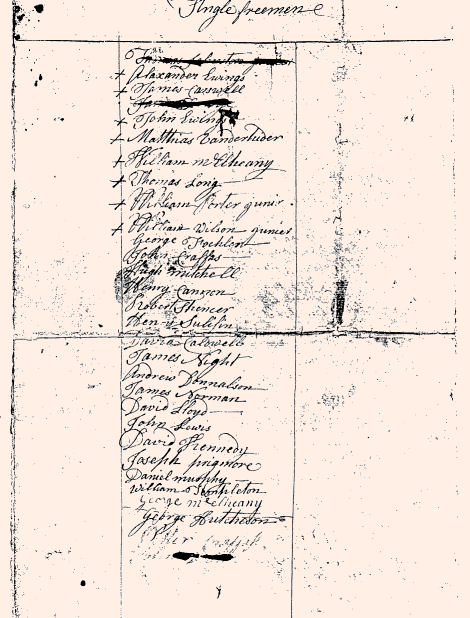 Single freemen
+ Alaxander Ewings
+ James Carswell
+ John Ewings
+ Matthias Vanderluder
+ William mcElheany
+ Thomas Long
+ William Porter
+ William Wilson
George
John Craffas
Hugh mitchell
Henry Cannon
Robert Spencer
Henry
David Caldwell
James Night
Andrew Donnalson
James Norman
David Lloyd
John Lewis
David Kennedy
Joseph prigmore
Daniel murphy
William Stapleton
George mcElheany
George Hutcheson